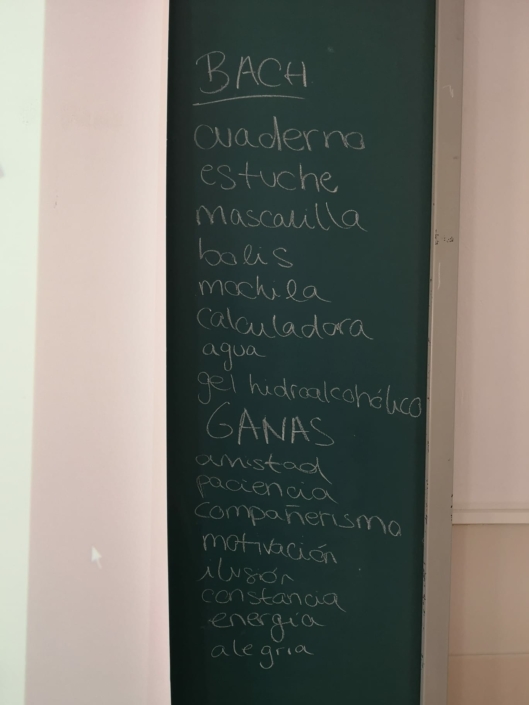 BACH
cuaderno
estuche
mascarilla
bolis
mochila
calculadora
agua
gel hidroalcohólico
GANAS
amistad
paciencia
compañerismo
motivación
ilusión
constancia
energía
alegria